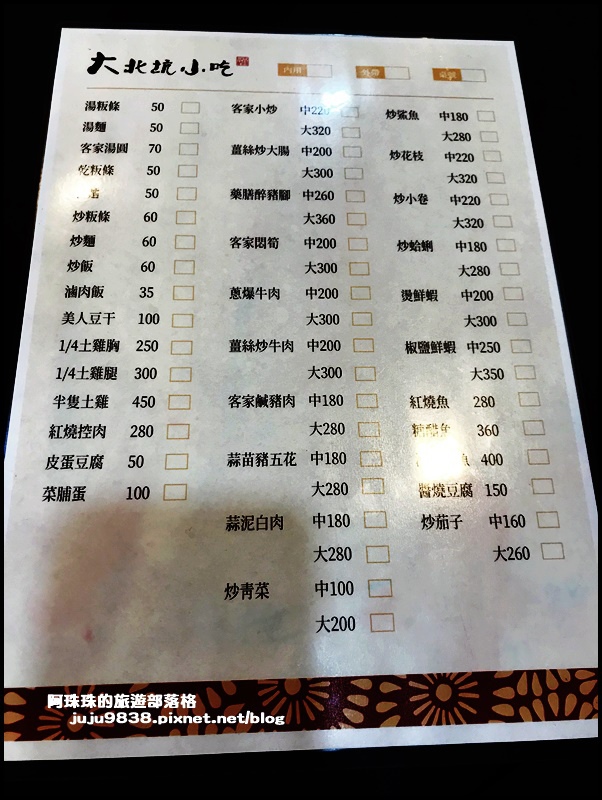 大北坑小吃
內用 外帶 桌號
湯粄條 50
湯麵 50
客家湯圓 70
乾粄條 50
50
炒粄條 60
炒麵 60
炒飯 60
滷肉飯 35
美人豆干 100
1/4土雞胸 250
1/4土雞腿 300
半隻土雞 450
紅燒控肉 280
皮蛋豆腐 50
菜脯蛋 100
客家小炒 中220
大320
薑絲炒大腸 中200
大300
藥膳醉豬腳 中260
大360
客家悶筍 中200
大300
蔥爆牛肉 中200
大300
薑絲炒牛肉 中200
大300
客家鹹豬肉 中180
大280
蒜苗豬五花 中180
大280
蒜泥白肉 中180
大280
炒靑菜 中100
大200
炒鯊魚 中180
大280
炒花枝 中220
大320
炒小卷 中220
大320
炒蛤蜊 中180
大280
燙鮮蝦 中200
大300
椒鹽鮮蝦 中250
大350
紅燒魚 280
糖醋魚 360
魚 400
醬燒豆腐 150
炒茄子 中160
大260
阿珠珠的旅遊部落格
juju9838.pixnet.net/blog